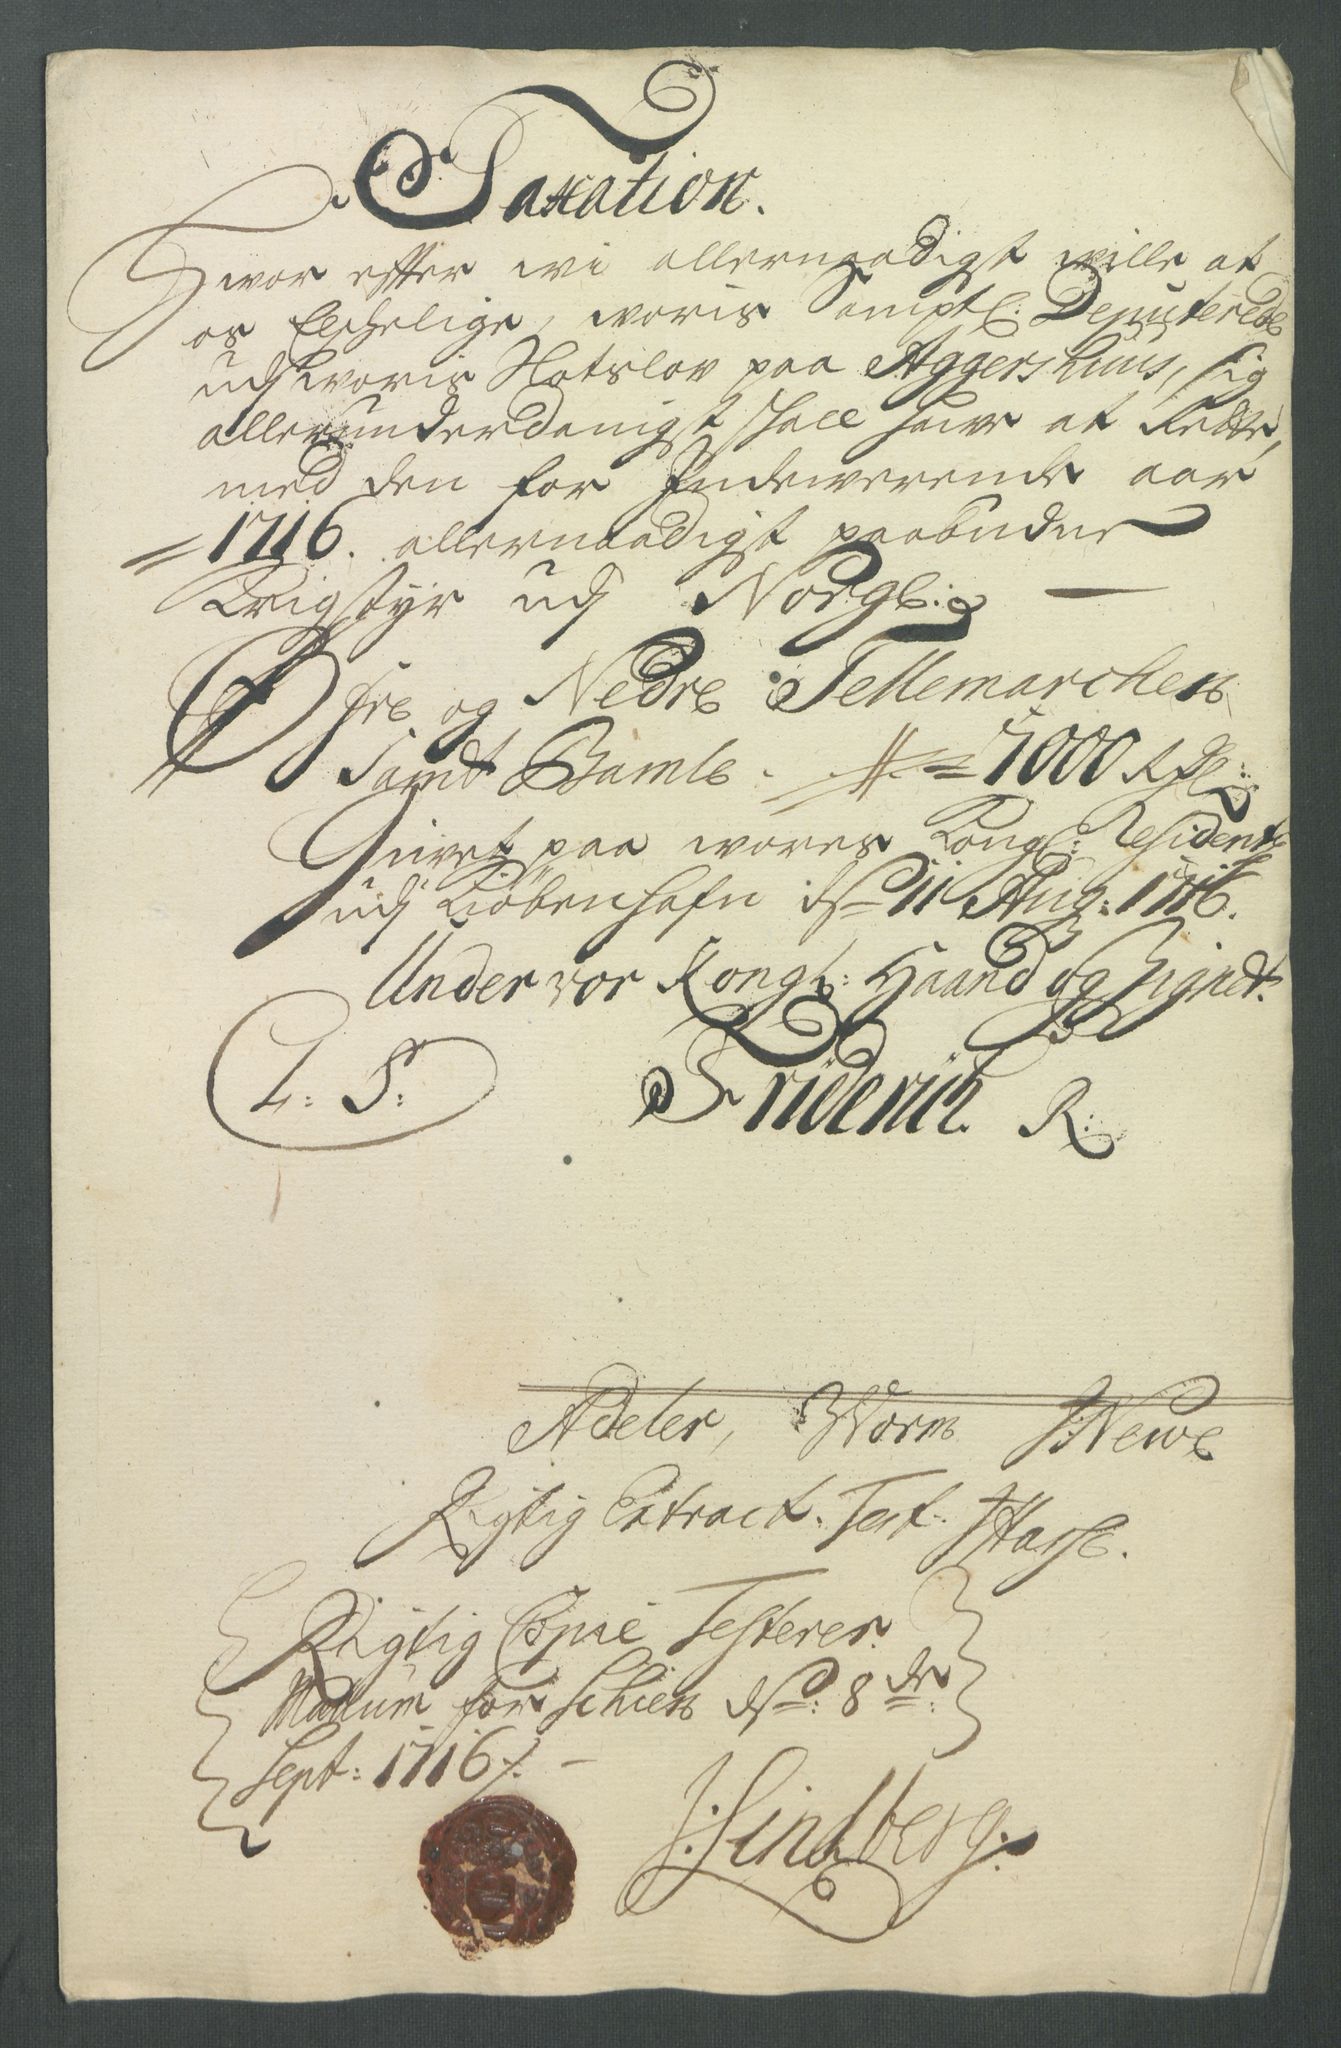 Taxation.
Hvor efter wi allernaadigst wille at
os Elschelige, woris Samptl: Deputerede
udj woris Slotslov paa Aggershuus, sig
allerunderdanigst shall hawe at Rette,
med den for Indewerende aar
1716. allernaadigst paabudne
Krigstyr udj Norge:
Øfre og Nedre Tellemarchen
samdt Bamle. 7000 Rdl:
Giwet paa wores Kongl: Residentz
udj Kiøbenhafn dend 11 Aug: 1716.
Under vor Kongl: Haand og Signet.
L: S: Friderich R:
Adeler, Worm JNewe
Rigtig Extract. Test.
Rigtig Copie Testerer
for Schien dend: 8de
Sept: 1716
J: Lindberg: